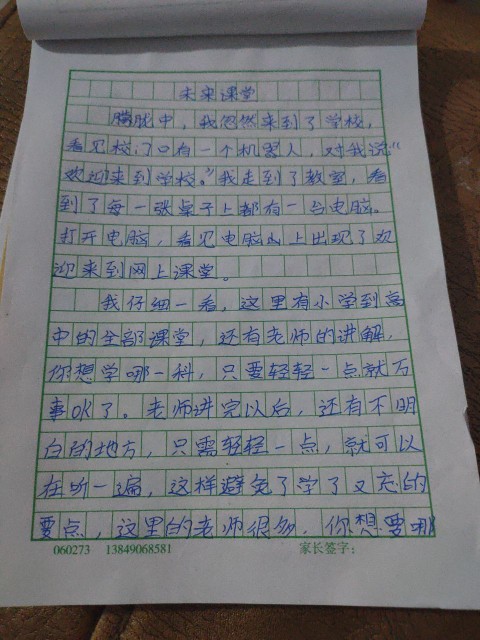 未来课堂
朦胧中，我忽然来到了学校，
看见校门口有一个机器人，对我说“
欢迎来到学校。”我走到了教室，看
到了每一张桌子上都有一台电脑。
打开电脑，看见电脑上出现了欢
迎来到网上课堂。
我仔细一看，这里有小学到高
中的全部课堂，还有老师的讲解，
你想学哪一科，只要轻轻一点就万
事OK了。老师讲完以后，还有不明
白的地方，只需轻轻一点，就可以
在听一遍，这样避免了学了又忘的
要点，这里的老师很多，你想要哪
060273 13849068581 家长签字：